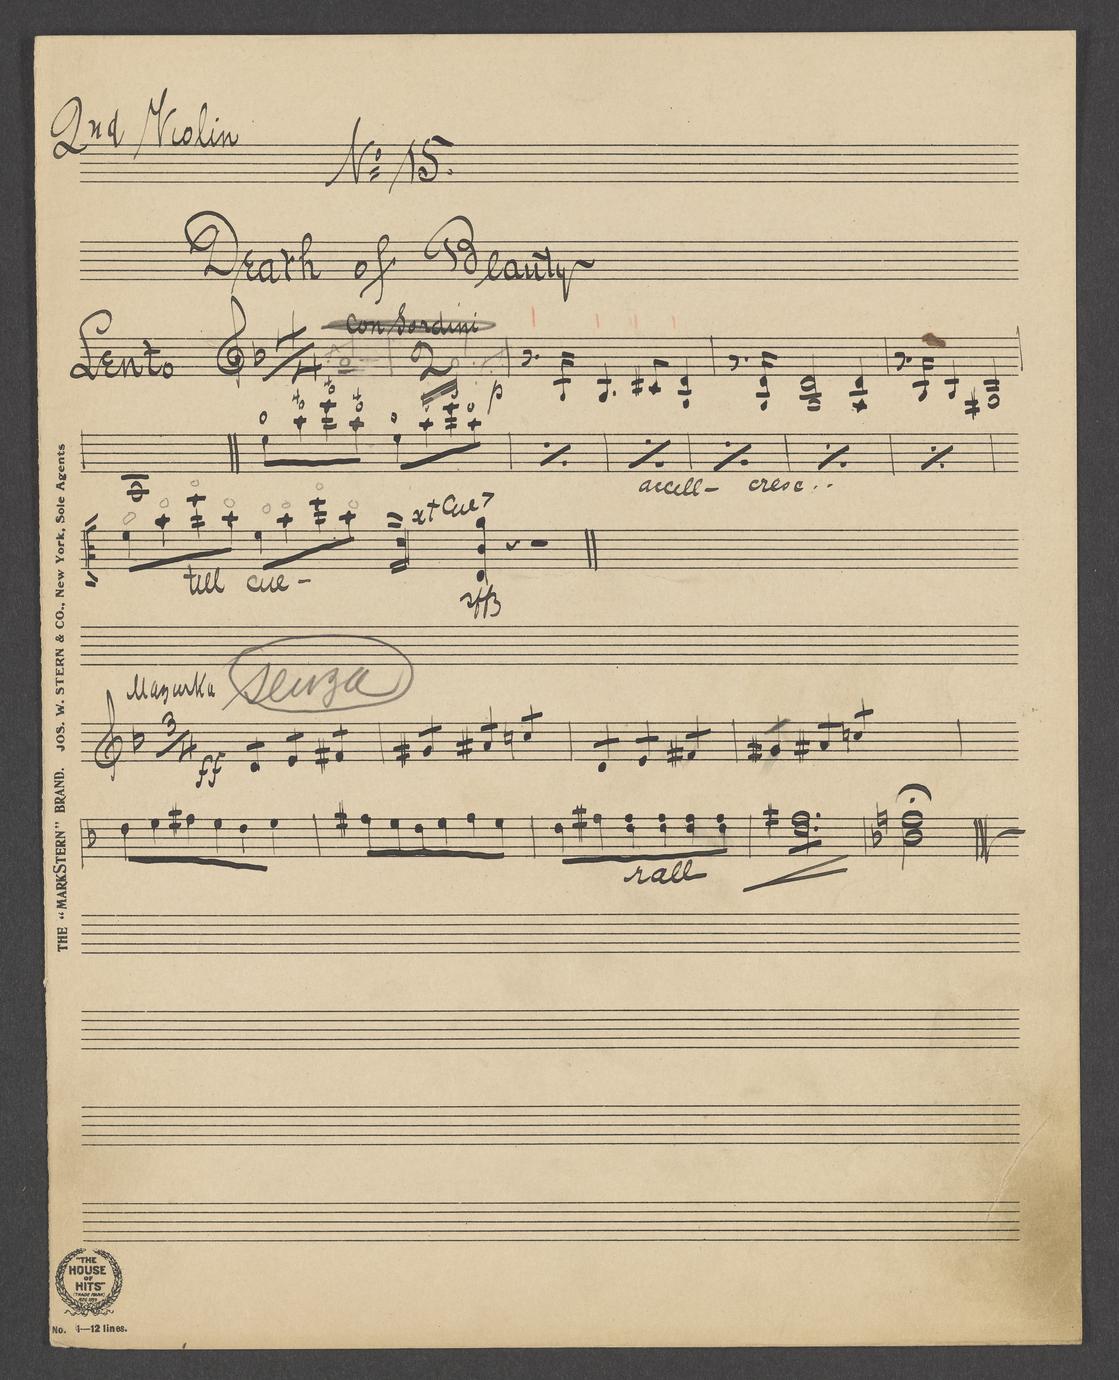 2nd Violin
No 15.
Death of Beauty
Lento
con Sordini
4/4
2
p
accell - cresc..
at Cue
till cue -
sffz
Mazurka senza
3/4
ff
rall
THE "MARKSTERN" BRAND. JOS. W. STERN & CO., New York, Sole Agents
"THE
HOUSE
OF
HITS"
(TRADE MARK)
No. 1—12 lines.